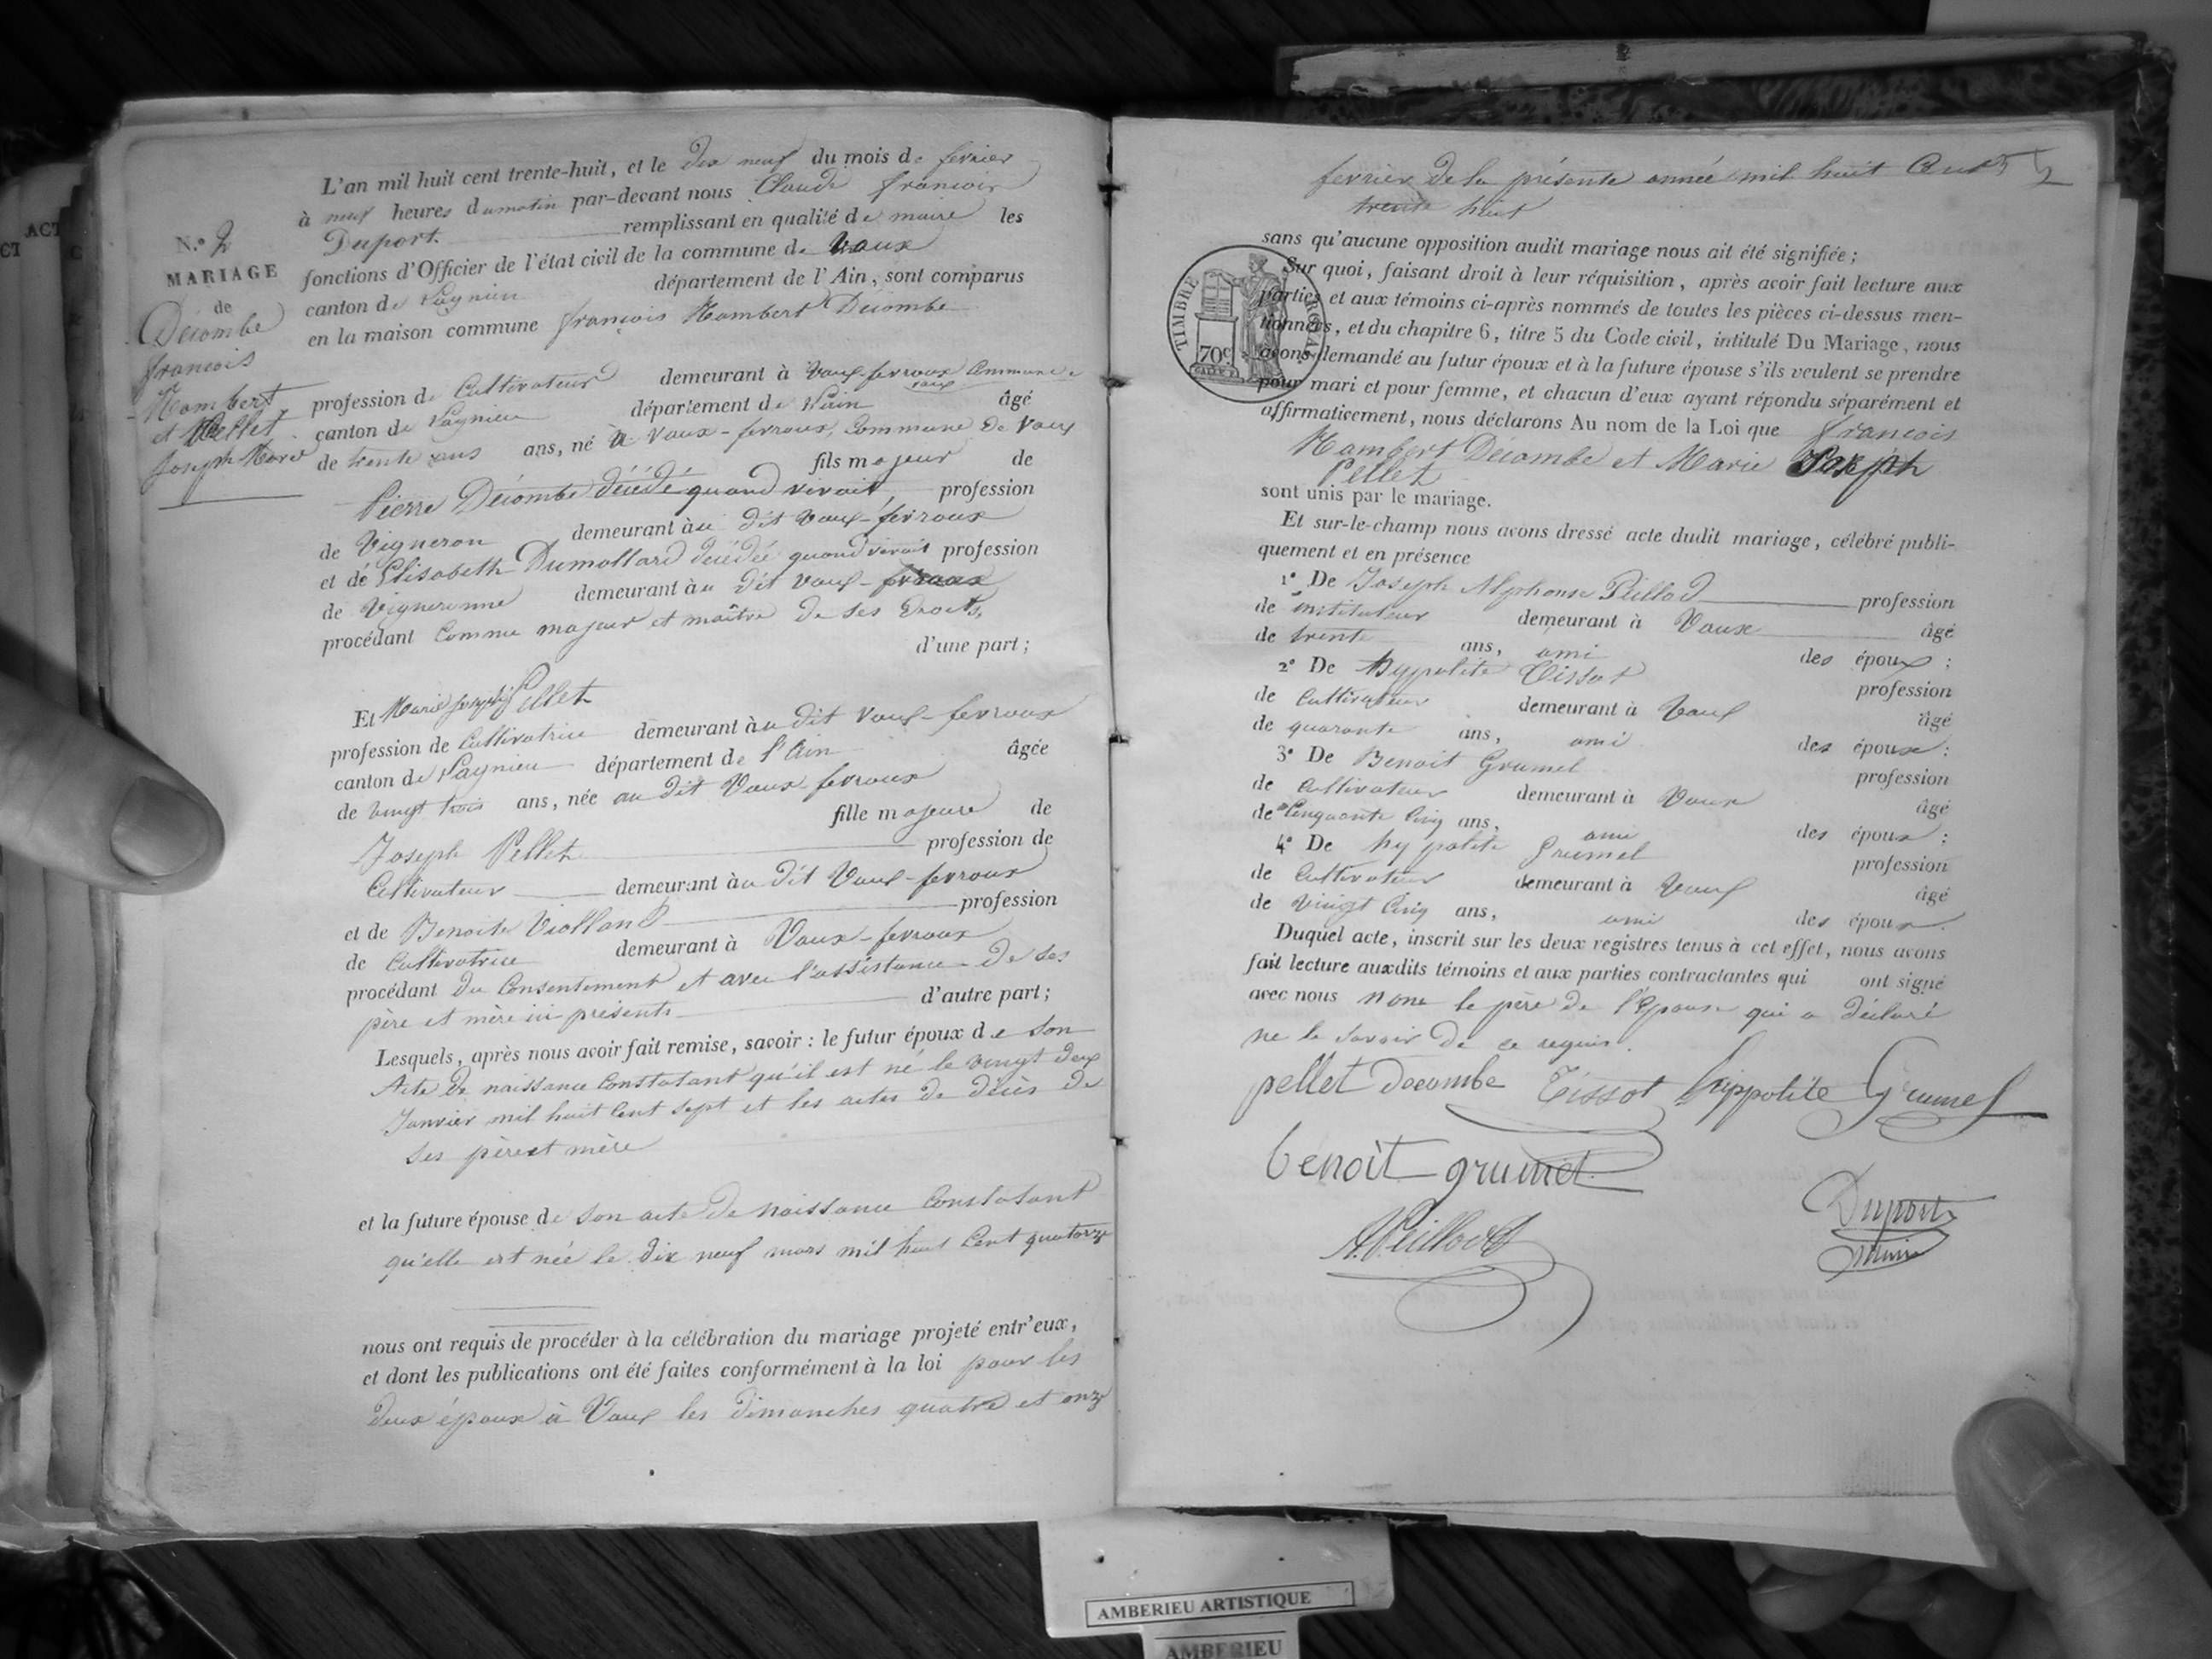 ACT
CT
C
N.º 2
MARIAGE
de
Décombe
françois
Hambert
et Pellet
Joseph Marie
L'an mil huit cent trente-huit, et le dix neuf du mois de fevrier
à neuf heures du matin par-devant nous Claude françois
Duport remplissant en qualité de maire les
fonctions d'Officier de l'état civil de la commune de Vaux
canton de Lagnieu département de l'Ain, sont comparus
en la maison commune françois Hambert Décombe
profession de Cultivateur demeurant à Vaux-fevroux Commune
vaux
canton de Lagnieu département de l'ain âgé
de trente ans ans, né à Vaux-fevroux, Commune de Vaux
fils majeur de
Pierre Décombe décédé quand vivait, profession
de Vigneron demeurant au dit Vaux-fevroux
et de Elisabeth Dumollard décédée quand vivait profession
de Vigneronne demeurant au dit Vaux-fevroux
procédant Comme majeur et maître de ses droits,
d'une part;
Et Marie Joseph Pellet
profession de Cultivatrice demeurant au dit Vaux-fevroux
canton de Lagnieu département de l'Ain âgée
de vingt trois ans, née au dit Vaux fevroux
fille majeure de
Joseph Pellet profession de
Cultivateur demeurant au dit Vaux-fevroux
et de Benoite Violland profession
de Cultivatrice demeurant à Vaux-fevroux
procédant du Consentement et avec l'assistance de ses
père et mère ici présents d'autre part;
Lesquels, après nous avoir fait remise, savoir: le futur époux de son
Acte de naissance Constatant qu'il est né le vingt deux
Janvier mil huit Cent Sept et les actes de décès de
ses père et mère
et la future épouse de son acte de naissance Constatant
qu'elle est née le dix neuf mars mil huit Cent quatorze
nous ont requis de procéder à la célébration du mariage projeté entr'eux,
et dont les publications ont été faites conformément à la loi pour les
deux époux à Vaux les dimanches quatre et onze
fevrier de la présente année mil huit Cent
trente huit
sans qu'aucune opposition audit mariage nous ait été signifiée;
Sur quoi, faisant droit à leur réquisition, après avoir fait lecture aux
parties et aux témoins ci-après nommés de toutes les pièces ci-dessus men-
tionnées, et du chapitre 6, titre 5 du Code civil, intitulé Du Mariage, nous
avons demandé au futur époux et à la future épouse s'ils veulent se prendre
pour mari et pour femme, et chacun d'eux ayant répondu séparément et
affirmativement, nous déclarons Au nom de la Loi que françois
Hambert Décombe et Marie Joseph
Pellet
sont unis par le mariage.
TIMBRE ROYAL
70c
Et sur-le-champ nous avons dressé acte dudit mariage, célébré publi-
quement et en présence
1º De Joseph Alphonse Peillod profession
de instituteur demeurant à Vaux âgé
de trente ans, ami des époux;
2º De hyppolite Tissot profession
de Cultivateur demeurant à Vaux âgé
de quarante ans, ami des époux;
3º De Benoit Grumel profession
de Cultivateur demeurant à Vaux âgé
de Cinquante Cinq ans, ami des époux;
4º De hypolite Grumel profession
de Cultivateur demeurant à Vaux âgé
de Vingt Cinq ans, ami des époux.
Duquel acte, inscrit sur les deux registres tenus à cet effet, nous avons
fait lecture auxdits témoins et aux parties contractantes qui ont signé
avec nous le père de l'épouse qui a déclaré
ne le savoir de ce requis.
pellet Decombe Tissot hippolite Grumel
benoit grumel
A. Peillod
Duport
Maire
AMBERIEU ARTISTIQUE
AMBERIEU